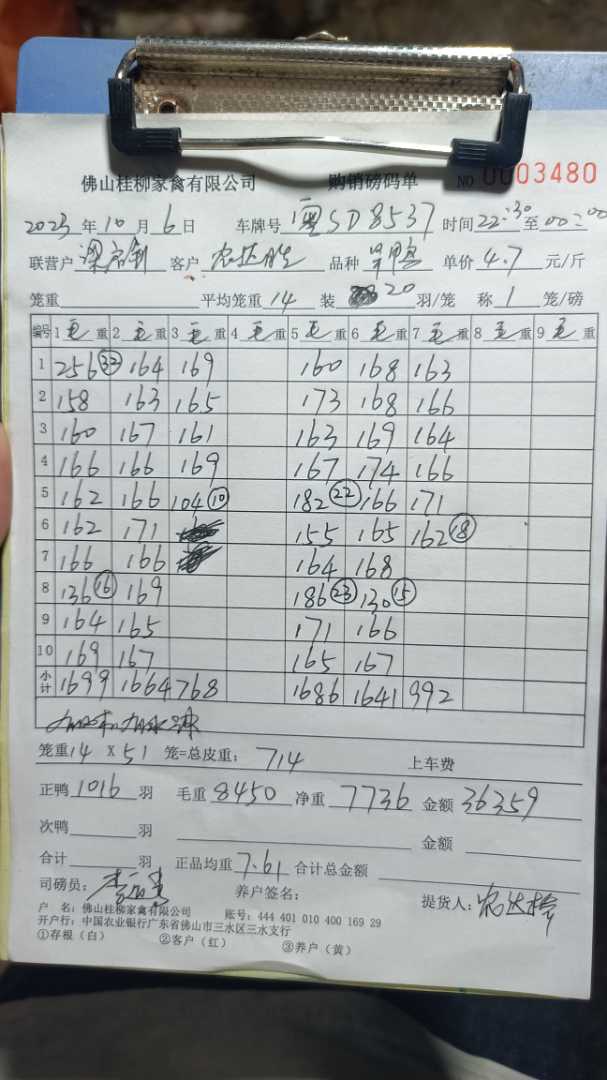 佛山桂柳家禽有限公司 购销磅码单 NO 0003480
2023年10月6日 车牌号 粤SD8537 时间22:30至00:00
联营户 客户 农达胜 品种 旱鸭 单价 4.7 元/斤
笼重 平均笼重 14 装 20 羽/笼 称 1 笼/磅
编号 1 毛 重 2 毛 重 3 毛 重 4 重 5 毛 重 6 毛 重 7 毛 重 8 毛 重 9 毛 重
1 256 (32) 164 169 160 168 163
2 158 163 165 173 168 166
3 160 167 161 163 169 164
4 166 166 169 167 174 166
5 162 166 104 (10) 182 (22) 166 171
6 162 171 155 165 162 (18)
7 166 166 164 168
8 136 (16) 169 186 (23) 130 (15)
9 164 165 171 166
10 169 167 165 167
小计 1699 1664 768 1686 1641 992
笼重14 X 51 笼=总皮重: 714 上车费
正鸭 1016 羽 毛重 8450 净重 7736 金额 36359
次鸭 羽 金额
合计 羽 正品均重 7.61 合计总金额
司磅员: 养户签名: 提货人:
户 名: 佛山桂柳家禽有限公司 账号: 444 401 010 400 169 29
开户行: 中国农业银行广东省佛山市三水区三水支行
①存根(白) ②客户(红) ③养户(黄)